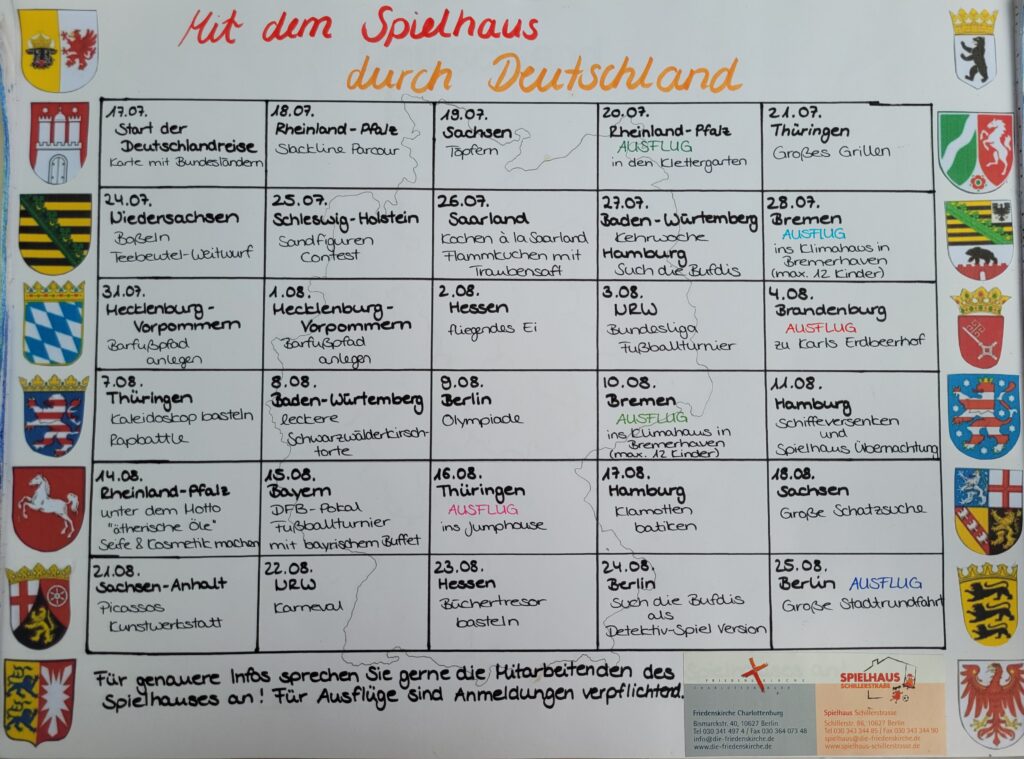 Mit dem Spielhaus
durch Deutschland
17.07.
Start der
Deutschlandreise
Karte mit Bundesländern
18.07.
Rheinland-Pfalz
Slackline Parcour
19.07.
Sachsen
Töpfern
20.07.
Rheinland-Pfalz
AUSFLUG
in den Klettergarten
21.07.
Thüringen
Großes Grillen
24.07.
Niedersachsen
Boßeln
Teebeutel-Weitwurf
25.07.
Schleswig-Holstein
Sandfiguren
Contest
26.07.
Saarland
Kochen à la Saarland
Flammkuchen mit
Traubensaft
27.07.
Baden-Würtemberg
Kehrwoche
Hamburg
Such die Bufdis
28.07.
Bremen
AUSFLUG
ins Klimahaus in
Bremerhaven
(max. 12 Kinder)
31.07.
Mecklenburg-
Vorpommern
Barfußpfad
anlegen
1.08.
Mecklenburg-
Vorpommern
Barfußpfad
anlegen
2.08.
Hessen
fliegendes Ei
3.08.
NRW
Bundesliga
Fußballturnier
4.08.
Brandenburg
AUSFLUG
zu Karls Erdbeerhof
7.08.
Thüringen
Kaleidoskop basteln
Rapbattle
8.08.
Baden-Würtemberg
leckere
Schwarzwälderkirsch-
torte
9.08.
Berlin
Olympiade
10.08.
Bremen
AUSFLUG
ins Klimahaus in
Bremerhaven
(max. 12 Kinder)
11.08.
Hamburg
Schiffeversenken
und
Spielhaus Übernachtung
14.08.
Rheinland-Pfalz
unter dem Motto
"ätherische Öle"
Seife & Kosmetik machen
15.08.
Bayern
DFB-Pokal
Fußballturnier
mit bayrischem Buffet
16.08.
Thüringen
AUSFLUG
ins Jumphouse
17.08.
Hamburg
Klamotten
batiken
18.08.
Sachsen
Große Schatzsuche
21.08.
Sachsen-Anhalt
Picassos
Kunstwerkstatt
22.08.
NRW
Karneval
23.08.
Hessen
Büchertresor
basteln
24.08.
Berlin
Such die Bufdis
als
Detektiv-Spiel Version
25.08.
Berlin AUSFLUG
Große Stadtrundfahrt
Für genauere Infos sprechen Sie gerne die Mitarbeitenden des
Spielhauses an! Für Ausflüge sind Anmeldungen verpflichtod.
FRIEDENSKIRCHE
CHARLOTTENBURG
Friedenskirche Charlottenburg
Bismarckstr. 40, 10627 Berlin
Tel 030 341 497 4 / Fax 030 364 073 48
info@die-friedenskirche.de
www.die-friedenskirche.de
SPIELHAUS
SCHILLERSTRAßE
Spielhaus Schillerstrasse
Schillerstr. 86, 10627 Berlin
Tel 030 343 344 85 / Fax 030 343 344 90
spielhaus@die-friedenskirche.de
www.spielhaus-schillerstrasse.de